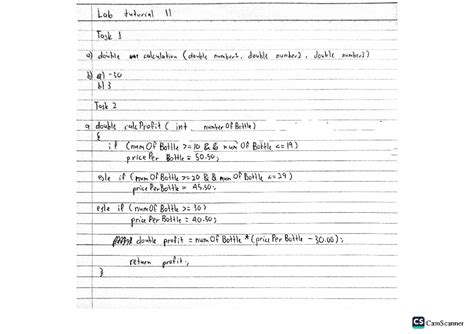 Lab tutorial 11
Task 1
a) double calculation (double number1, double number2, double number3)
b) a) -30
b) 3
Task 2
a double calcProfit ( int numberOfBottle)
{
if (numOfBottle >=10 && numOfBottle <=19)
pricePerBottle = 50.50;
esle if (numOfBottle >=20 && numOfBottle <=29)
pricePerBottle = 45.50;
esle if (numOfBottle >= 30)
pricePerBottle = 40.50;
double profit = numOfBottle * (pricePerBottle - 30.00);
return profit;
}
CS CamScanner